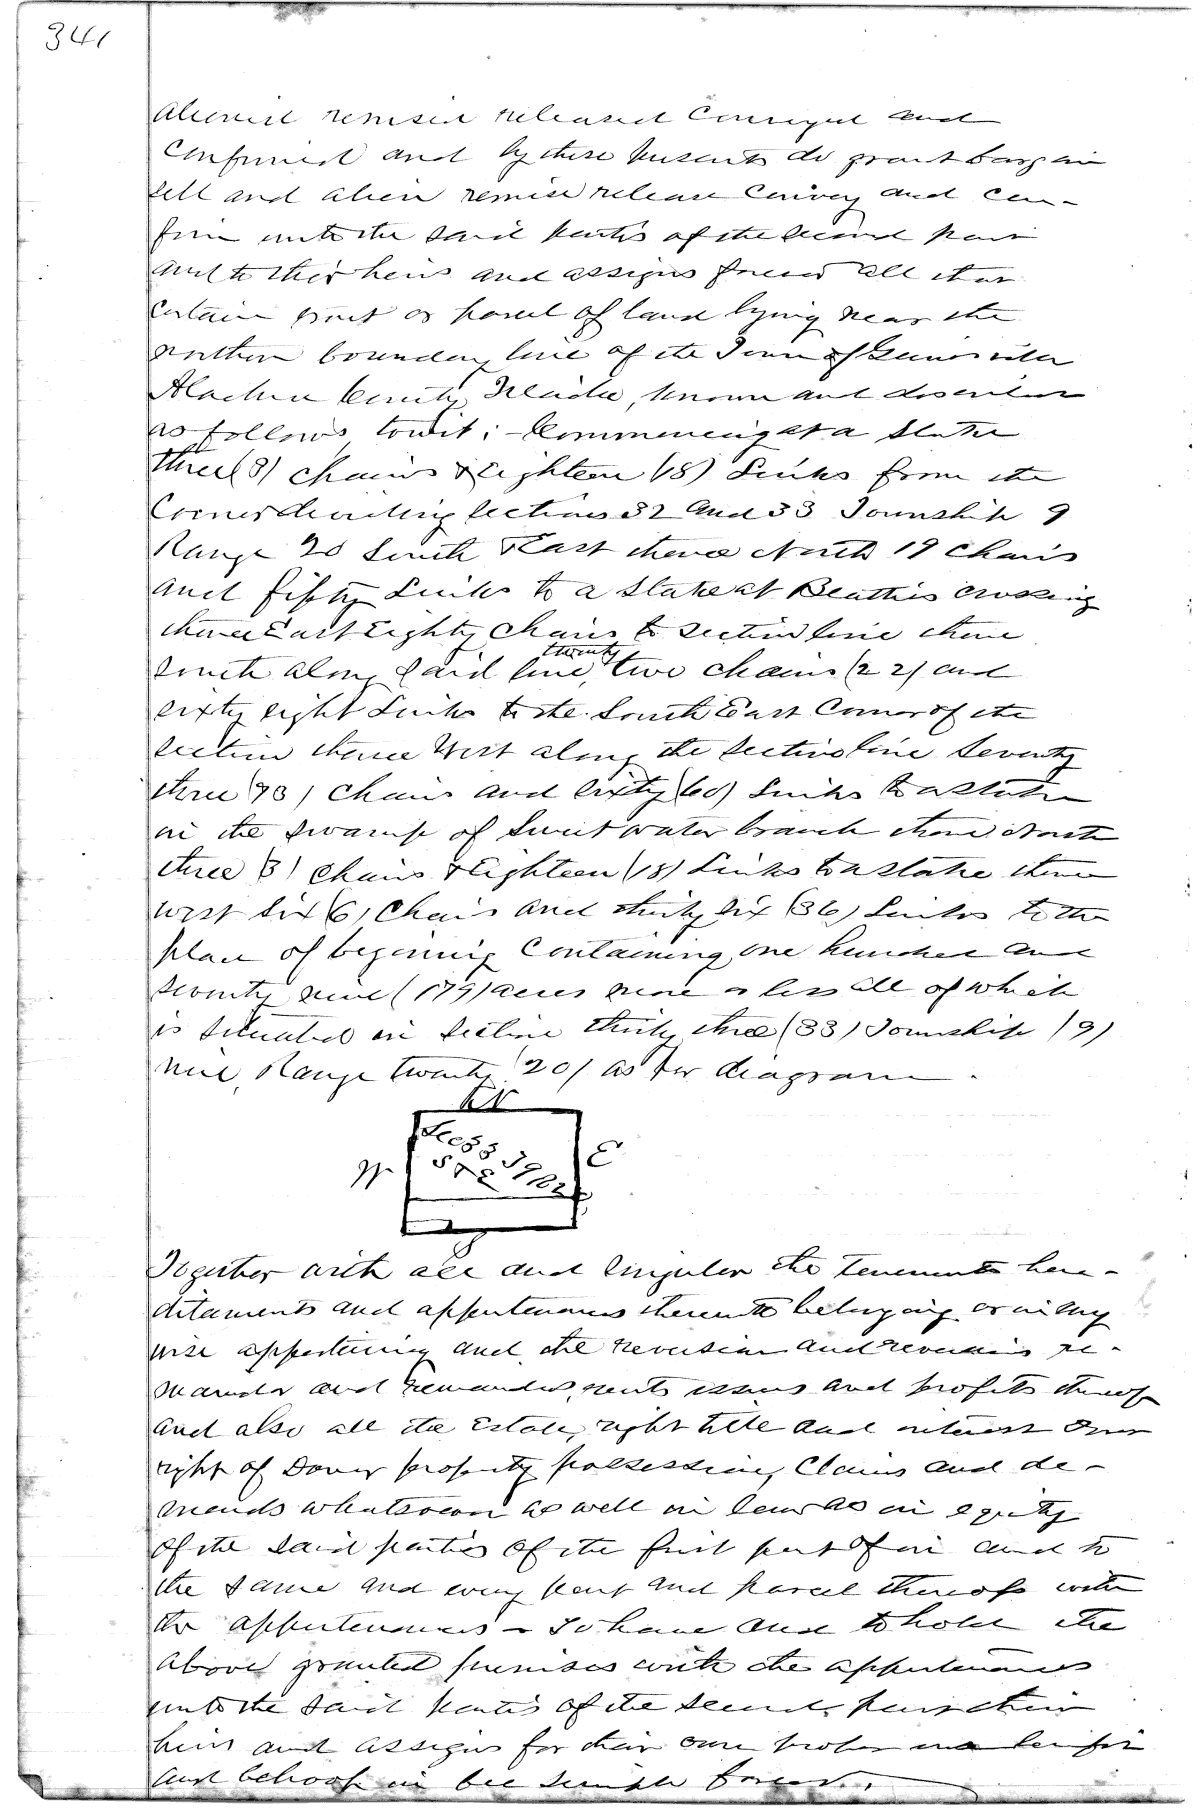 341
aliened remised released Conveyed and
Confirmed and by these presents do grant bargain
sell and alien remise release Convey and con-
firm unto the said parties of the second part
and to their heirs and assigns forever all that
certain tract or parcel of land lying near the
northern boundary line of the Town of Gainesville
Alachua County Florida, known and described
as follows towit; - Commencing at a Stake
three (3) chains & Eighteen (18) Links from the
Corner dividing Sections 32 and 33 Township 9
Range 20 South & East thence North 19 Chains
and fifty Links to a Stake at Beatties crossing
thence East Eighty Chains to Section line thence
South along said line twenty two chains (22) and
sixty eight Links to the South East Corner of the
section thence West along the section line Seventy
three (73) Chains and Sixty (60) Links to a stake
in the Swamp of Sweetwater branch thence North
three (3) chains & Eighteen (18) Links to a stake thence
west Six (6) Chains and thirty Six (36) Links to the
place of beginning Containing one hundred and
seventy nine (179) acres more or less all of which
is situated in Section thirty three (33) Township (9)
nine, Range twenty (20) as per diagram.
N
W E
Sec 33
S
Together with all and Singular the tenements here-
ditaments and appurtenances thereunto belonging or in any
wise appertaining and the reversion and reversions re-
mainder and remainders, rents issues and profits thereof
and also all the Estate, right title and interest Dower
right of Dower property possession, Claims and de-
mands whatsoever as well in law as in equity
of the said parties of the first part of in and to
the same and every part and parcel thereof with
the appurtenances - To have and to hold the
above granted premises with the appurtenances
unto the said parties of the second part their
heirs and assigns for their own proper use benefit
and behoof in fee simple forever.